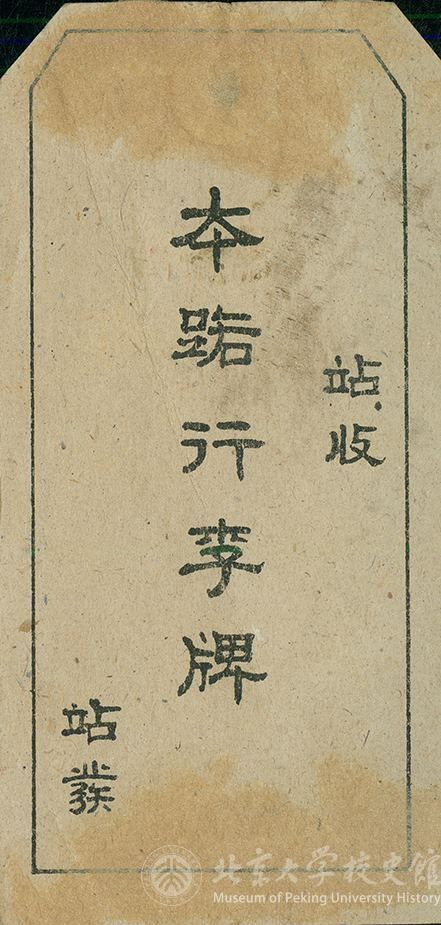 站收
本路行李牌
站發
北京大学校史館
Museum of Peking University History